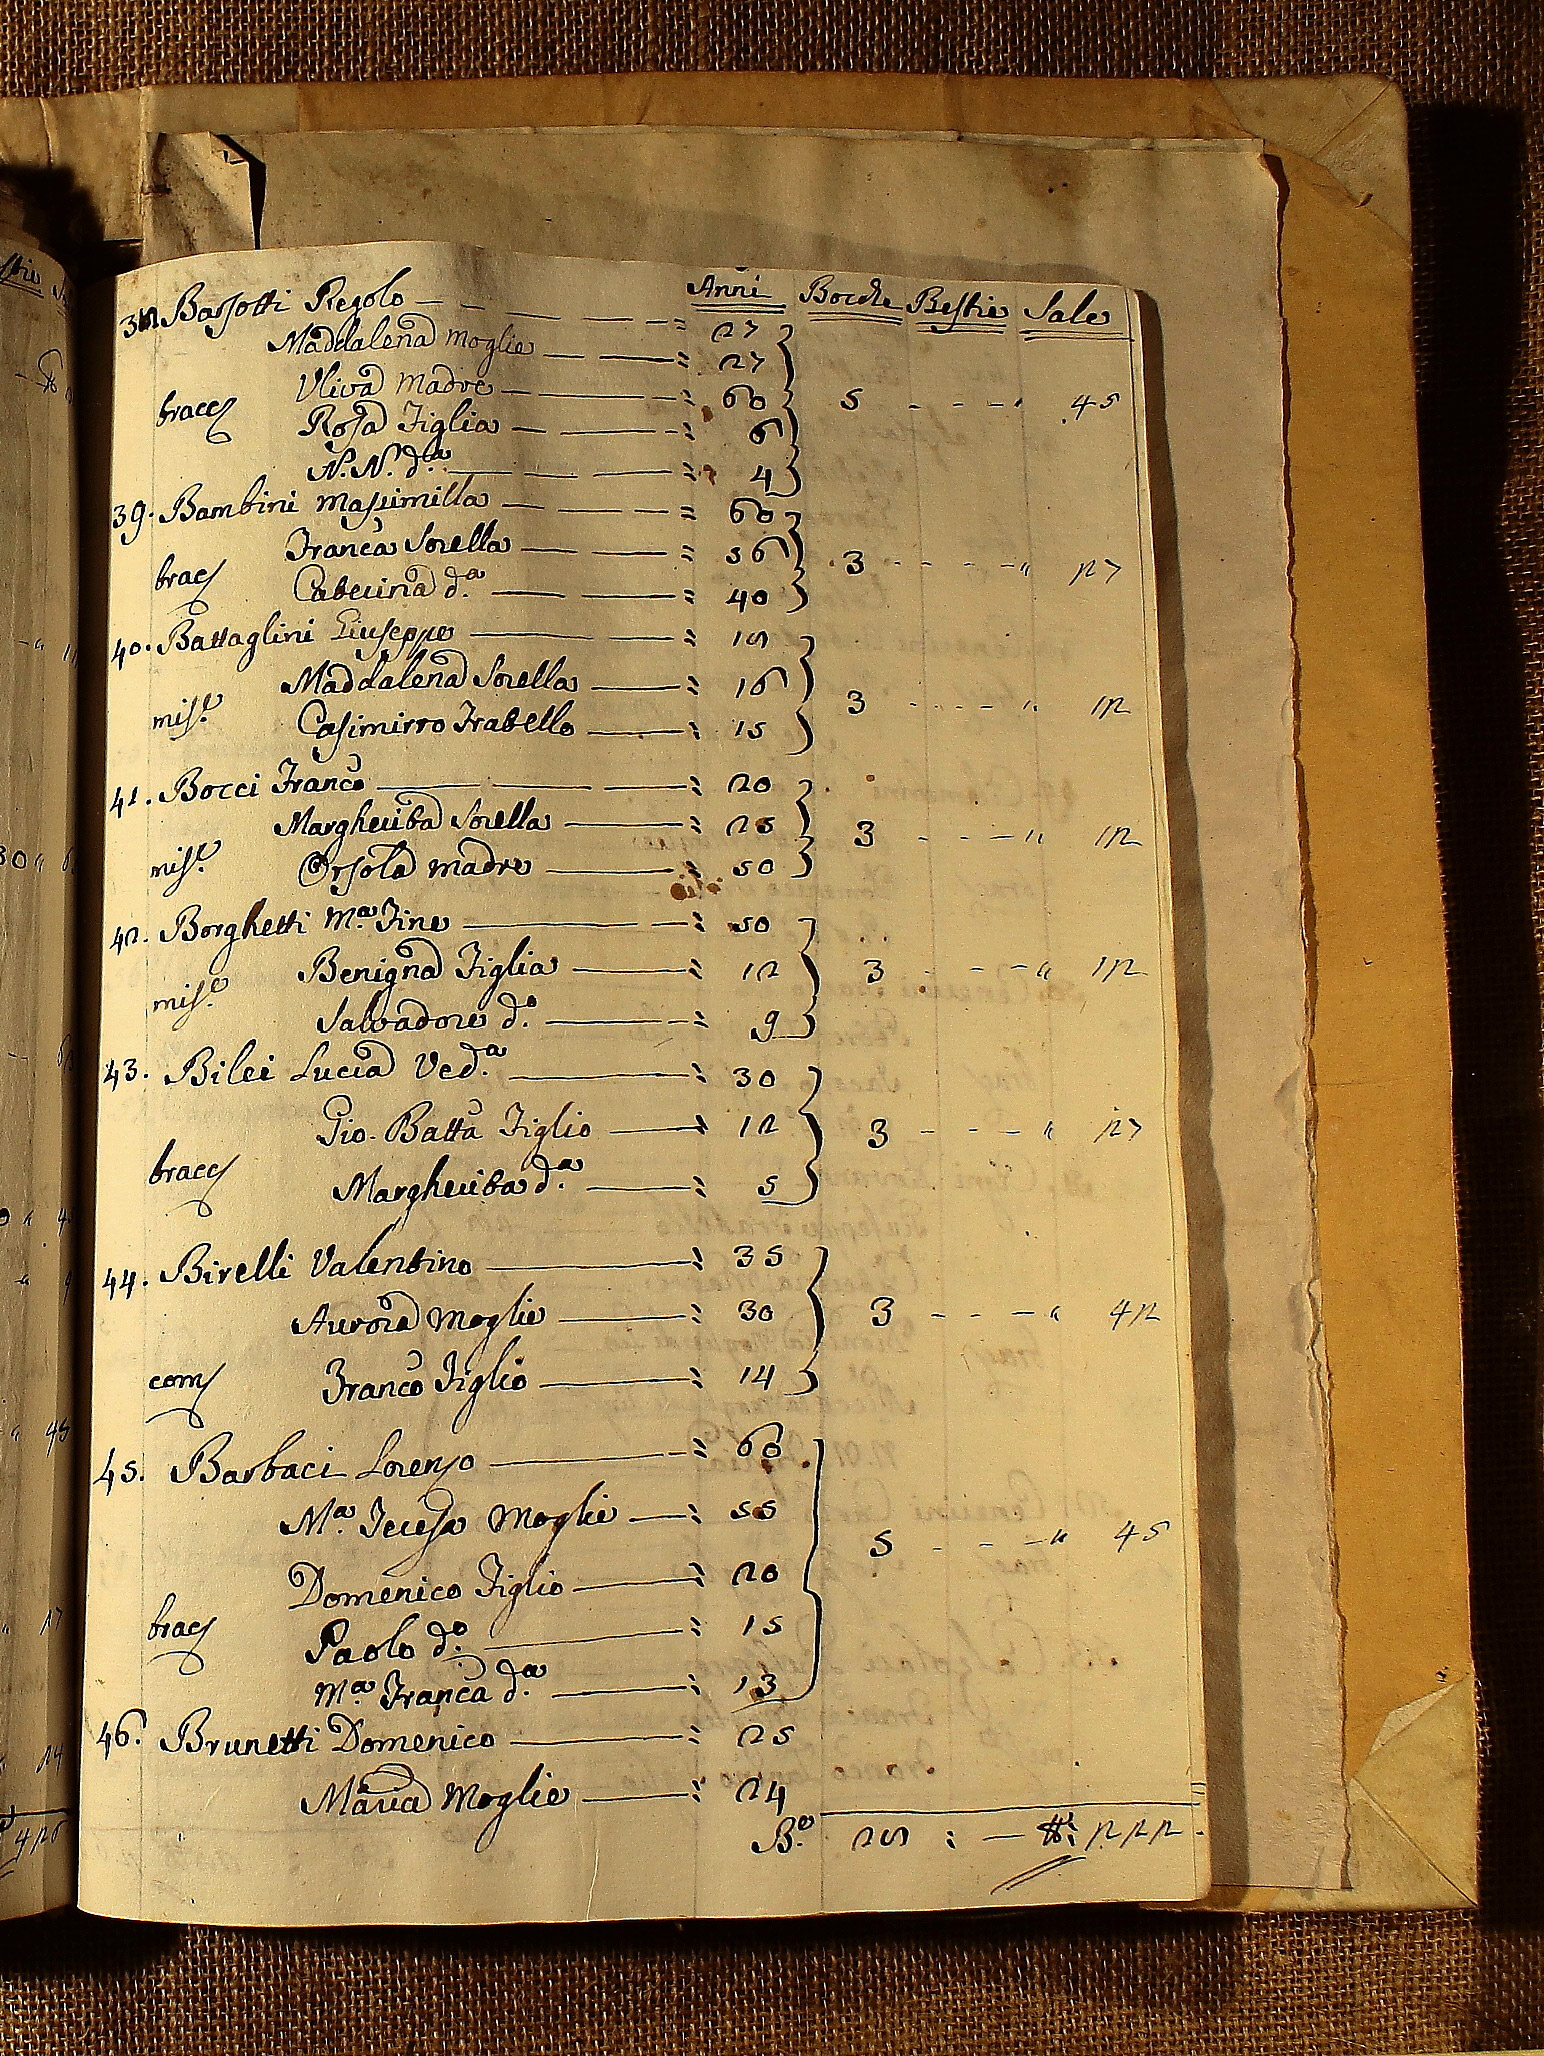 Anni Bocche Bestie Sale
38. Barsotti Regolo — — — = 27
Maddalena Moglie — — = 27
Uliva Madre — — = 60
bracc. 5 - - - " 45
Rosa Figlia — — = 6
N. N. d.ª — — = 4
39. Bambini Massimilla — — = 60
Fran.ca Sorella — — = 56
brac. 3 - - - " 27
Catterina d.ª — — = 40
40. Battaglini Giuseppe — — = 18
Maddalena Sorella — = 16
mis.e 3 - - - " 12
Casimirro Fratello — = 15
41. Bocci Fran.co — — = 20
Margherita Sorella — = 25
mis.e 3 - - - " 12
Orsola Madre — = 50
42. Borghetti M.ª Fine — — = 50
Benigna Figlia — = 12
mis.e 3 - - - " 12
Salvadore d.º — = 9
43. Bilei Lucia Ved.ª — = 30
Gio. Batta Figlio — = 12
bracc. 3 - - - " 27
Margherita d.ª — = 5
44. Birelli Valentino — = 35
Aurora Moglie — = 30
3 - - - " 42
com. Fran.co Figlio — = 14
45. Barbaci Lorenzo — = 60
M.ª Teresa Moglie — = 55
5 - - - " 45
Domenico Figlio — = 20
brac. Paolo d.º — = 15
M.ª Fran.ca d.ª — = 13
46. Brunetti Domenico — = 25
Maria Moglie — = 24
B.e 28 : — #: 222.